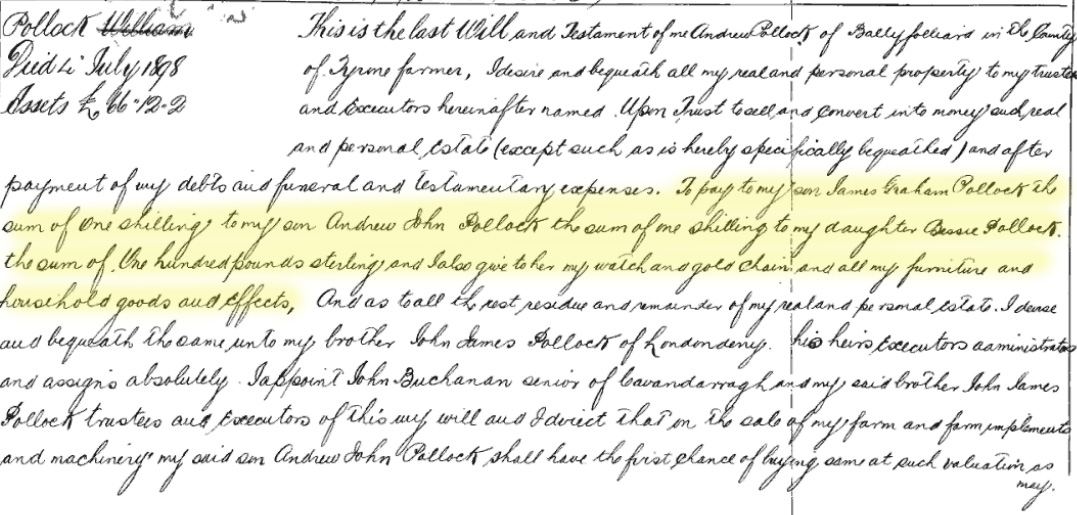 Pollock William
Died 4" July 1898
Assets £ 66-12-2
This is the last Will and Testament of me Andrew Pollock of Ballyfolliard in the County
of Tyrone farmer, I desire and bequeath all my real and personal property to my trustees
and Executors hereinafter named. Upon Trust to sell and convert into money such real
and personal Estate (except such as is hereby specifically bequeathed) and after
payment of my debts and funeral and testamentary expenses. To pay to my son James Graham Pollock the
sum of one shilling, to my son Andrew John Pollock the sum of one shilling to my daughter Bessie Pollock.
the sum of. One hundred pounds sterling and I also give to her my watch and gold chain and all my furniture and
household goods and effects, And as to all the rest residue and remainder of my real and personal Estate. I devise
and bequeath the same unto my brother John James Pollock of Londonderry. his heirs Executors administrators
and assigns absolutely. I appoint John Buchanan senior of Cavandarragh and my said brother John James
Pollock trustees and Executors of this my will and I direct that in the sale of my farm and farm implements
and machinery my said son Andrew John Pollock shall have the first chance of buying same at such valuation as
may.